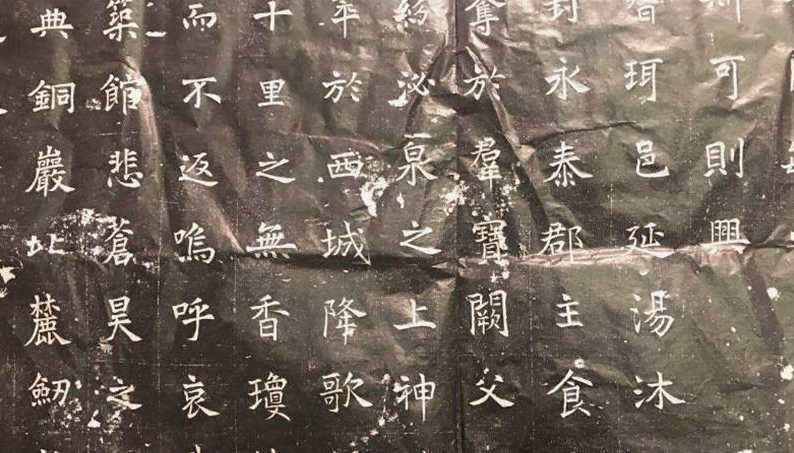 可則興
珥邑延湯沐
封永泰郡主食
奪於羣寶闕父
泌泉之上神
平於西城降歌
十里之無香瓊
而不返嗚呼哀
築館悲蒼昊之
典銅巖北麓